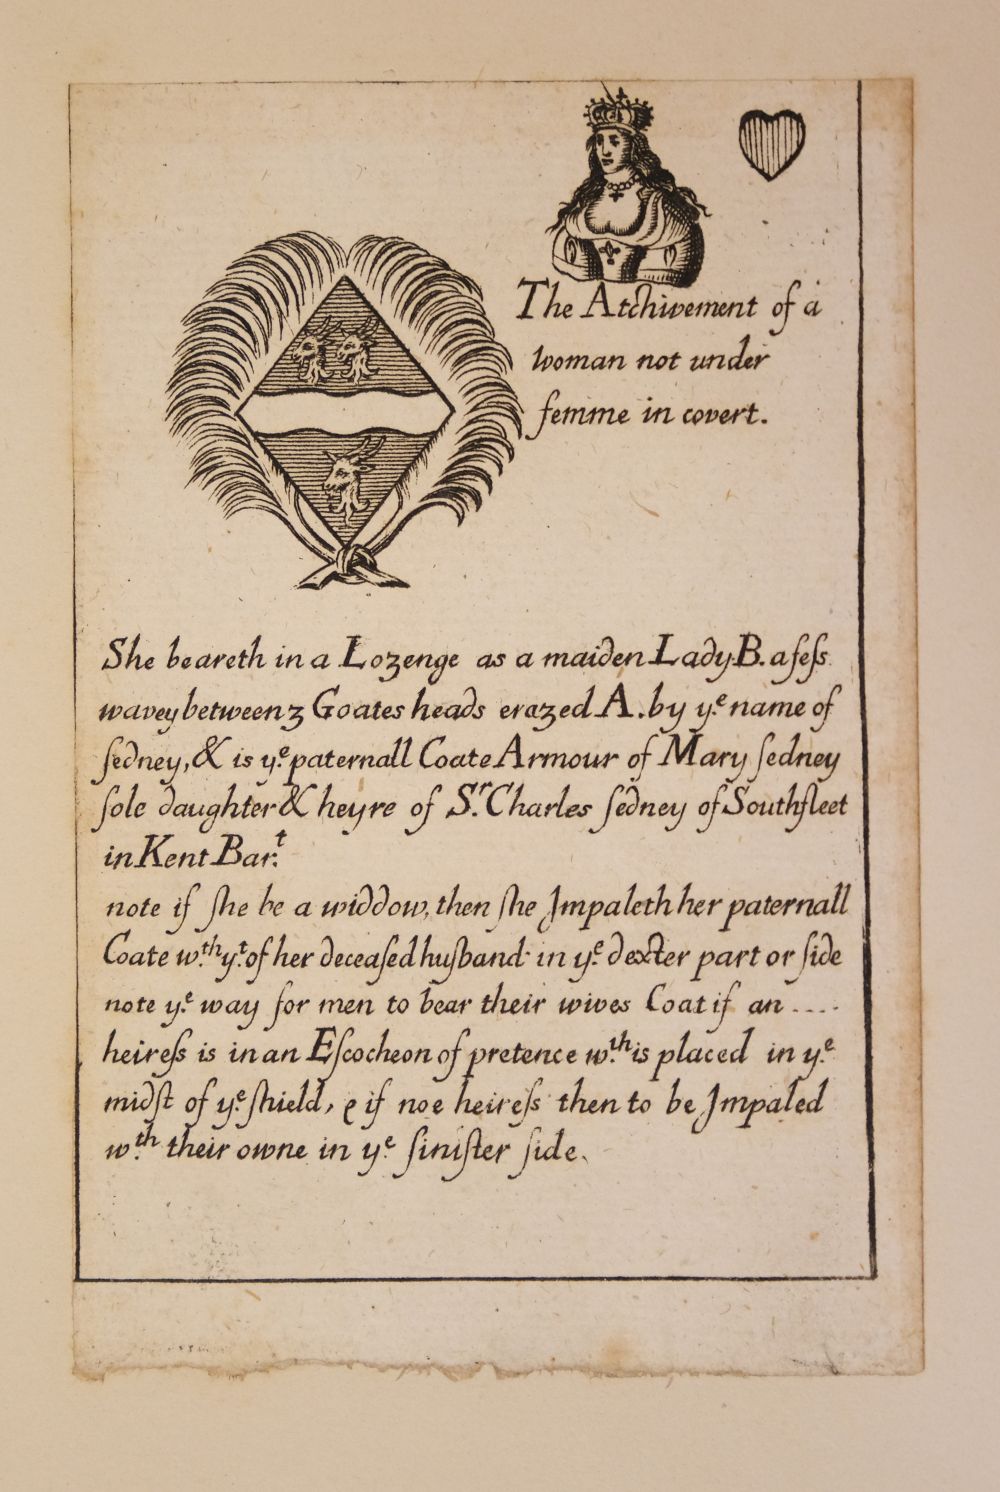 The Atchivement of a
woman not under
femme in covert.
She beareth in a Lozenge as a maiden Lady B. a feſs
wavey between 3 Goates heads erazed A. by yᵉ name of
ſedney, & is yᵉ paternall Coate Armour of Mary ſedney
ſole daughter & heyre of Sʳ. Charles ſedney of Southfleet
in Kent Bar:ᵗ
note if ſhe be a widdow, then ſhe Impaleth her paternall
Coate w.ᵗʰ yᵗ. of her deceaſed huſband in yᵉ dexter part or ſide
note yᵉ way for men to bear their wives Coat if an ....
heireſs is in an Eſcocheon of pretence w.ᵗʰ is placed in yᵉ
midſt of yᵉ ſhield, & if noe heireſs then to be Impaled
w.ᵗʰ their owne in yᵉ ſiniſter ſide.